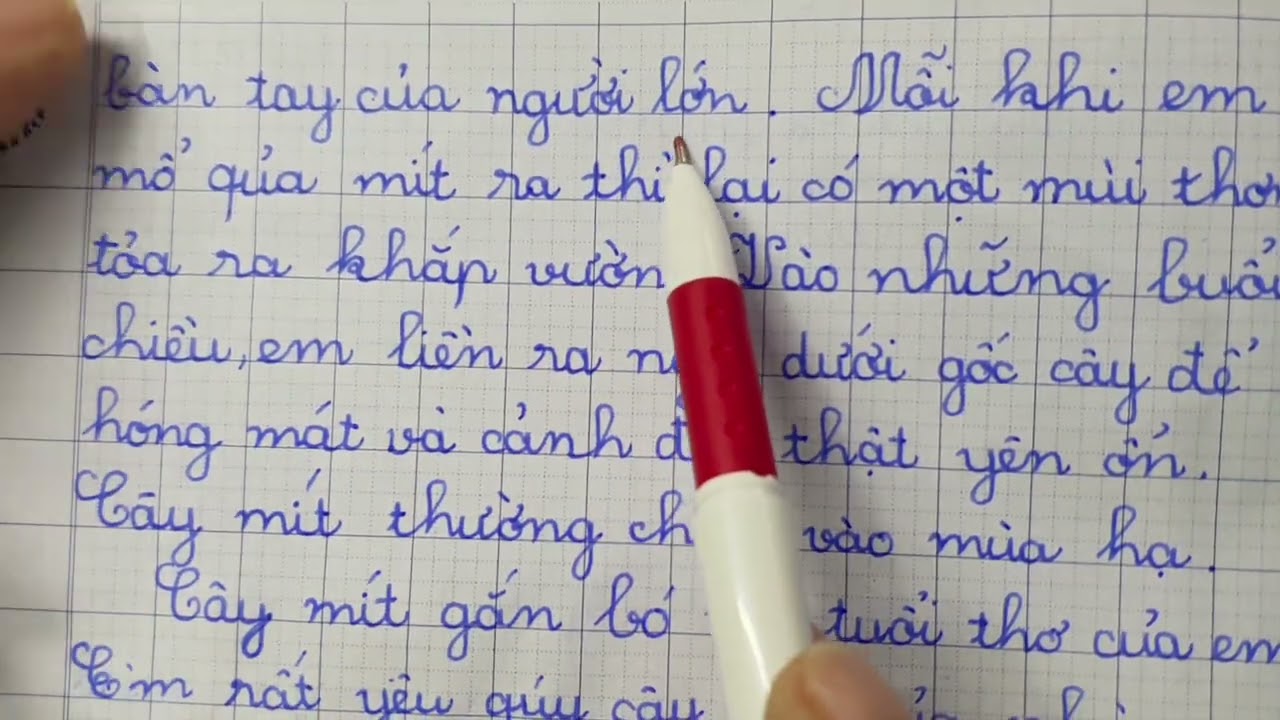 bàn tay của người lớn. Mỗi khi em
mổ quả mít ra thì lại có một mùi thơm
tỏa ra khắp vườn. Vào những buổi
chiều, em liền ra dưới gốc cây để
hóng mát và cảnh thật yên ổn.
Cây mít thường vào mùa hạ.
Cây mít gắn bó tuổi thơ của em
Em rất yêu quý cây